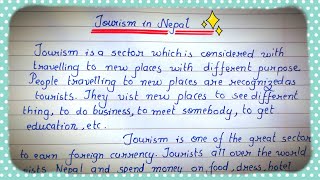 Tourism in Nepal
Tourism is a sector which is considered with
travelling to new places with different purpose.
People travelling to new places are recognized as
tourists. They vist new places to see different
thing, to do business, to meet somebody, to get
education, etc.
Tourism is one of the great sector
to earn foreign currency. Tourists all over the world
Nepal and spend money on food, dress, hotel